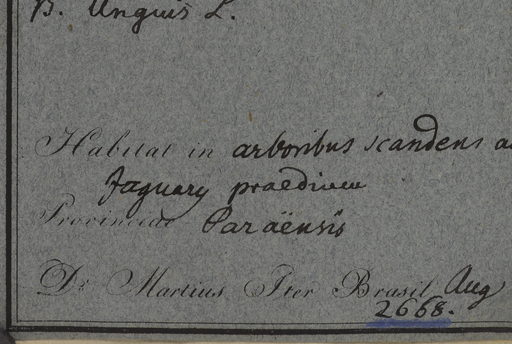 B. Unguis L.
Habitat in arboribus scandens ad
Jaguary praedium
Provinciae Paraënsis
Dr Martius Iter Brasil. Aug
2668.